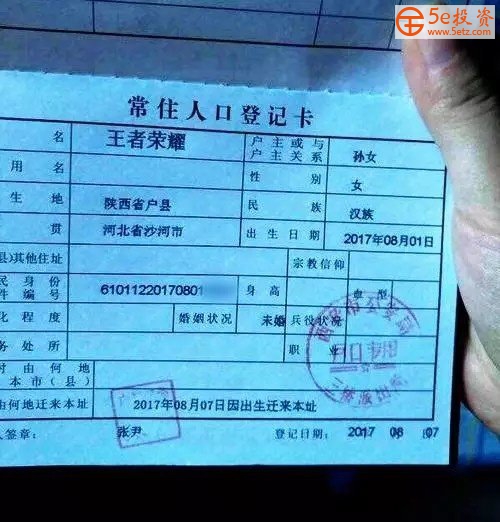 5e投资
www.5etz.com
常住人口登记卡
名 王者荣耀 户主或与户主关系 孙女
用名 性别 女
生地 陕西省户县 民族 汉族
贯 河北省沙河市 出生日期 2017年08月01日
县)其他住址 宗教信仰
民身份件编号 61011220170801 身高 血型
化程度 婚姻状况 未婚 兵役状况
务处所 职业
时由何地本市(县)
由何地迁来本址 2017年08月07日因出生迁来本址
人签章: 张尹 登记日期: 2017 08 07
户口专用